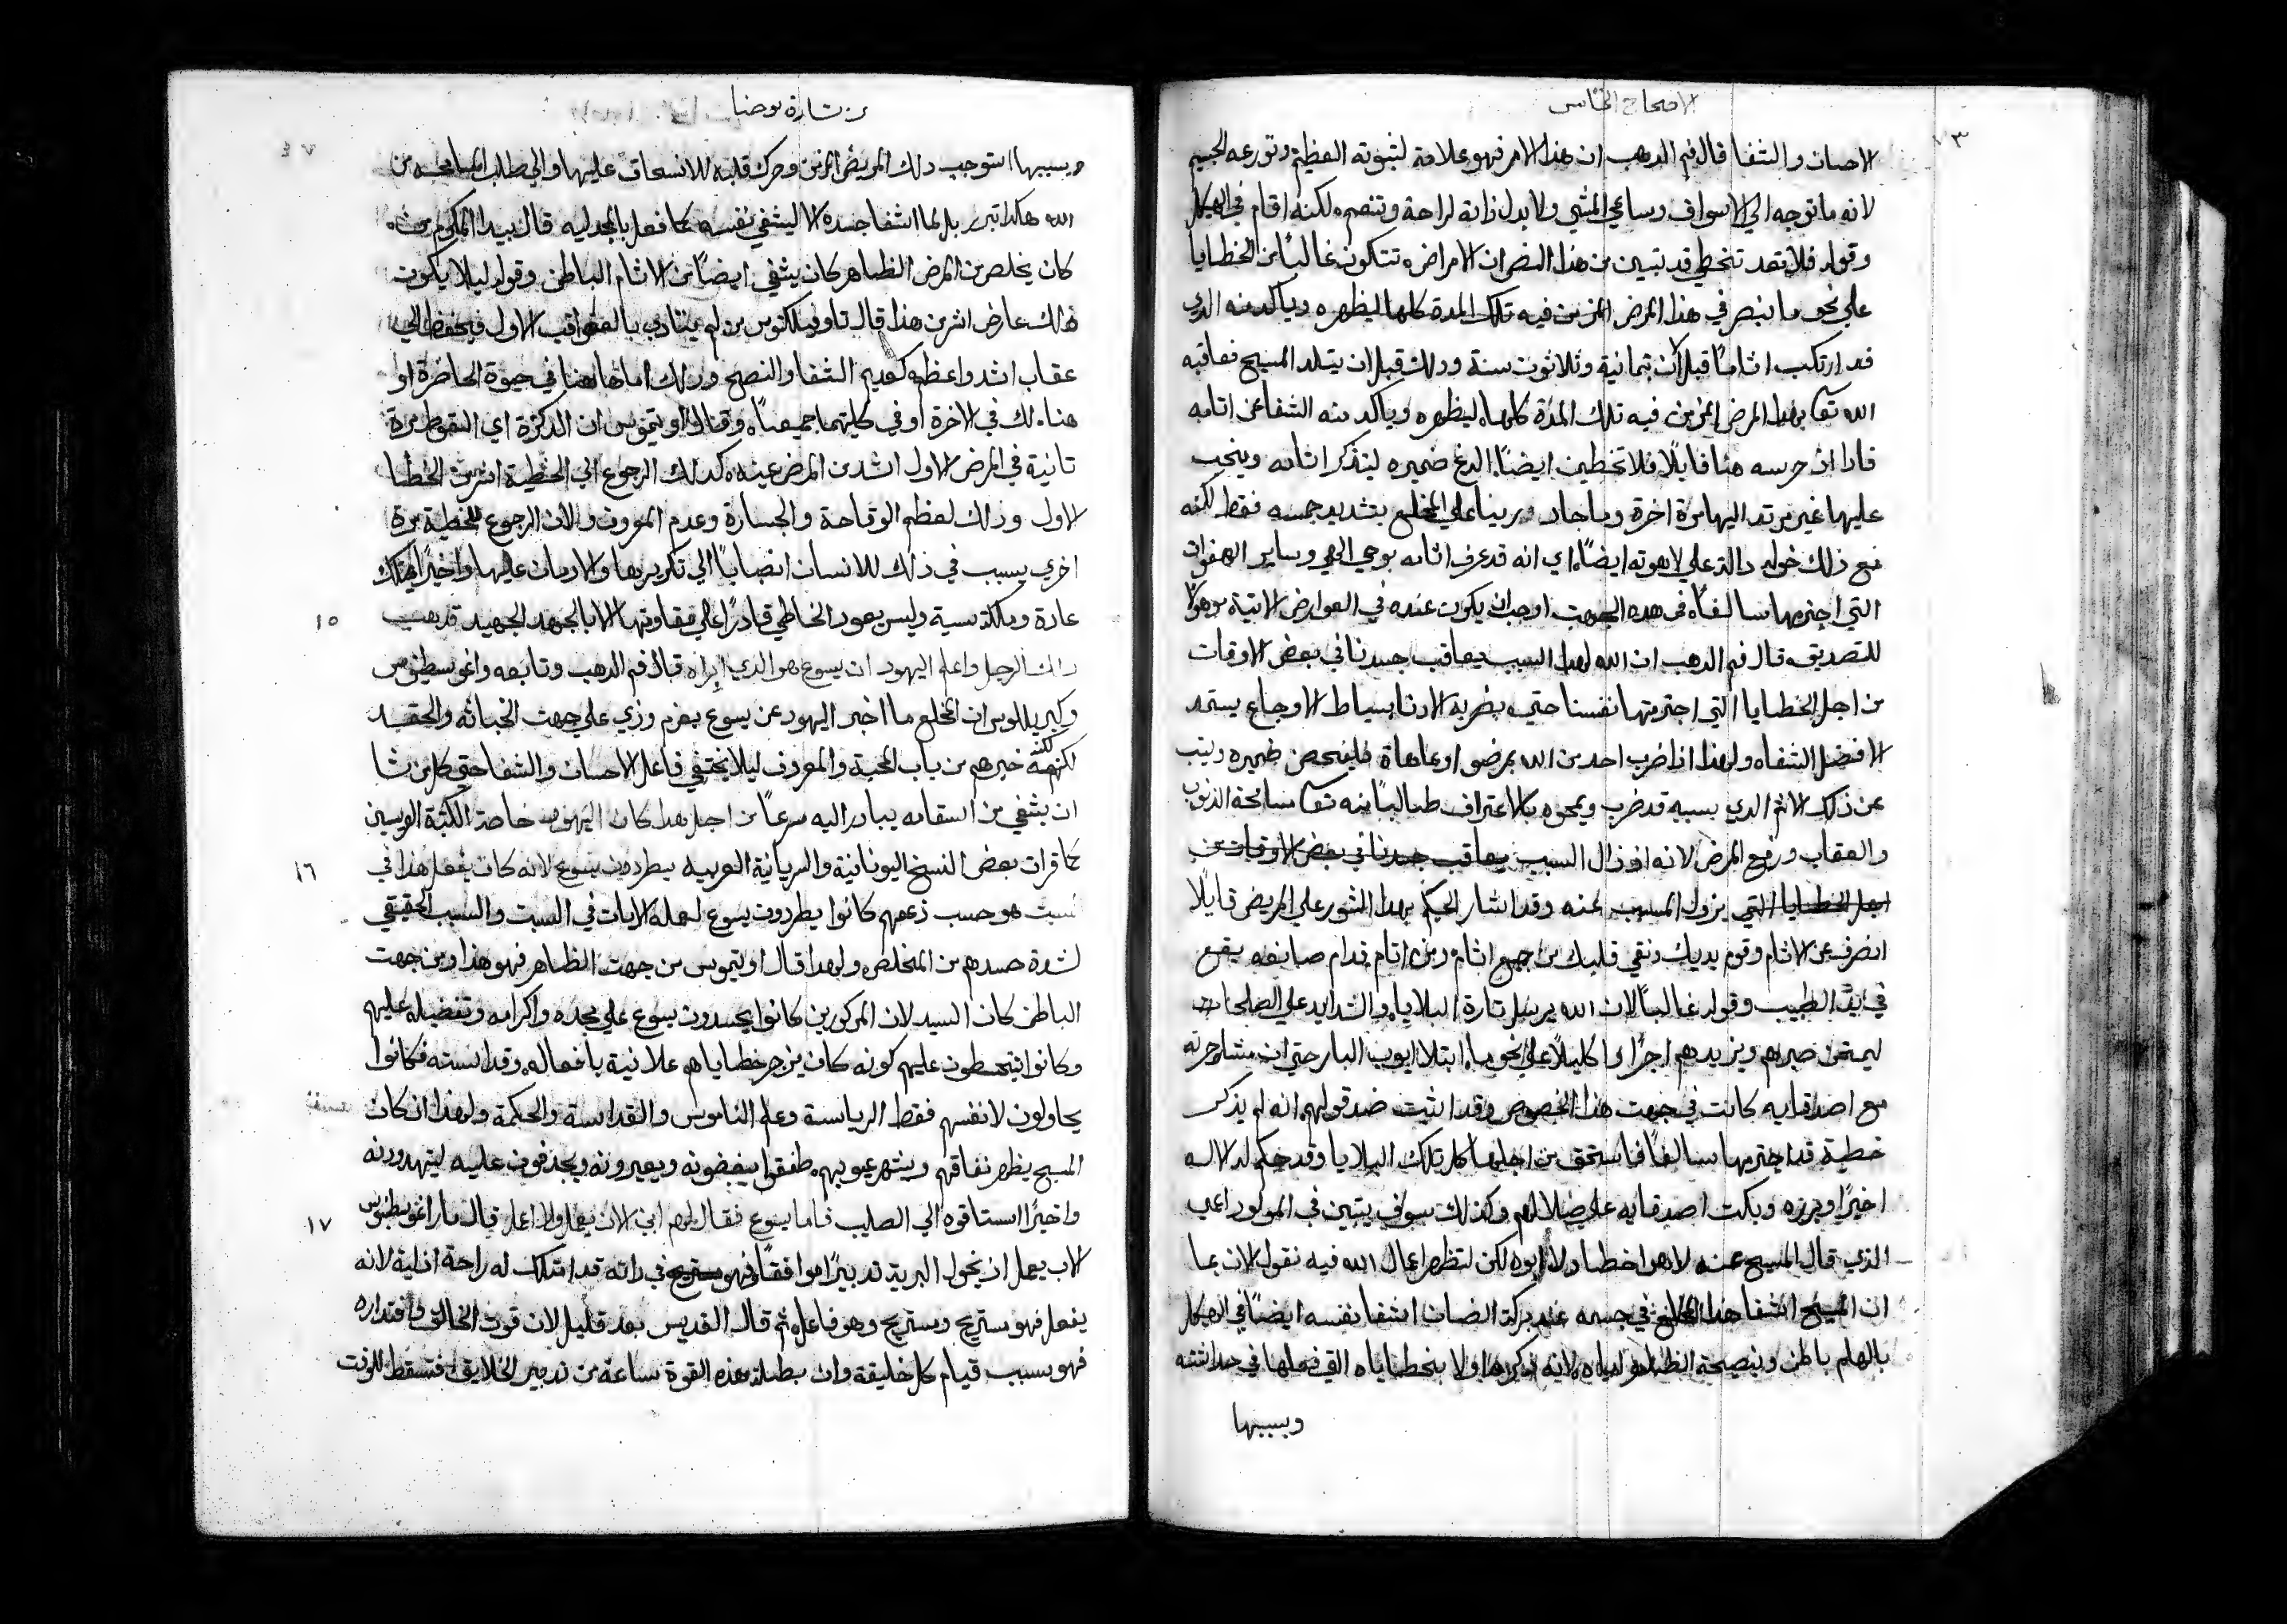 الاصحاح الخامس
الاحسان والشفا قال فم الدهب ان هذا الامر فهو علامة لتبوته العظيم وتورعه الجسيم
لانه ما توجه الي الاسواق وساعي المشي ولا بدل ذاته لراحة وتنعم لكنه اقام في الهيكل
وقوله فلا تعد تخطي قد تبين من هذا النص ان الامراض تتكون غالبًا من الخطايا
علي نحو ما نبصر في هذا المرض المزمن فيه تلك المدة كلها ليظهره وياكد منه الدي
قد ارتكب اثامًا قبل الان بتمانية وثلاثون سنة وذلك قبل ان يتلد المسيح فعاقبه
الله تعا بهدا المرض المزمن فيه تلك المدة كلها ليظهره وياكد منه الشفا عن اثامه
فادا ان حرسه هنا قايلًا فلا تخطين ايضًا الدغ ضميره ليتذكر اثامه وينحب
عليها غير مرتد اليها مرة اخرة وما جاد ربينا علي المخلع بتشديد جسمه فقط لكنه
مع ذلك خوله دالة علي لاهوته ايضًا اي انه قد عرف اثامه بوحي الهي وساير الهفوات
التي اجترمها سالفًا فمن هده الجهت اوجب ان يكون عنده في العوارض الاتية موهلًا
للتصديق قال فم الدهب ان الله لهدا السبب يعاقب جسدنا في بعض الاوقات
من اجل الخطايا التي اجترمتها نفسنا حتي بضربة الادنا بسياط الاوجاع يستمد
الافضل الشفاه ولهذا اذا ضرب احد من الله بمرض او عاهاة فليفحص ضميره ويتب
عن ذلك الاثم الدي بسببه قد ضرب ويمحوه بالاعتراف طالبًا منه تعا مسامحة الذنوب
والعقاب ورفع المرض لانه اذ زال السبب يعاقب جسدنا في بعض الاوقات من
اجل الخطايا التي يزول المسبب عنه وقد اشار الحكيم بهدا الشور علي المريض قايلًا
انصرف عن الاثام وقوم يديك ونقي قلبك من جميع اثام ومن اتام قدام صانعه يقع
في ايد الطبيب وقوله غالبًا لان الله يرسل تارة البلايا والشدايد علي الصلحا
ليمتحن صبرهم ويزيدهم اجرًا واكليلًا علي نحو ما ابتلا ايوب البار حتي ان مشاجرته
مع اصدقايه كانت في جهت هذا الخصوص وقد اثبت ضد قولهم انه لم يذكر
خطية قد اجترمها سالفًا فاستحق من اجلها كل تلك البلايا وقد حكم له الاله
اخيرًا وبرره وبكت اصدقايه علي ضلالهم وكذلك سوف يتبين في المولود اعمي
الذي قال المسيح عنه لا هدا خطا ولا ابوه لكن لتظهر اعمال الله فيه نقول الان بما
ان المسيح اشفا هذا المخلع في جسمه عند بركة الضان اشفا نفسه ايضًا في الهيكل
بالهام باطن وبنصيحة لانه ذكره اولا بخطاياه التي فعلها في حداثته
وبسببها
من بشارة يوحنا
وبسببها استوجب دلك المريض المزمن وحرك قلبه للانسحاق عليها والي طلب المسامحه من
الله هكذا تبرر بل لما اشفا جسده الا ليشفي نفسه كما فعل بالمجدليه قال بيدا المكرم من
كان يخلص من المرض الظاهر كان يشفي ايضًا من الاثام الباطن وقوله ليلا يكون
لك عارض اشر من هذا قال تاوفيلكتوس من لم يتادب بالعقاب الاول فيحفظ الي
عقاب اشد واعظم كعديم الشفا والنصح ودلك اما هاهنا في حيوة الحاضرة او
هناك في الاخرة او في كلتيهما جميعًا وقال اوتيموس ان الدكزة اي السقوط مرة
تانية في المرض الاول اشد من المرض عينه كدلك الرجوع الي الخطية اشر من الخطا
الاول ودلك لعظم الوقاحة والجسارة وعدم المعروف ولان الرجوع للخطية مرة
اخري يسبب في ذلك للانسان انصبابًا الي تكريرها والادمان عليها واخيرًا
عادة وملكة سية وليس يعود الخاطي قادرًا علي مقاومتها الا بالجهد الجهيد قدهب
داك الرجل واعلم اليهود ان يسوع هو الدي ابراه قال فم الدهب وتابعه واغوسطينوس
وكيريللوس ان المخلع ما اخبر اليهود عن يسوع بعزم رزي علي جهت الخباثه والحقد
لكنه خبرهم من باب المحبة والمعروف ليلا يختفي فاعل الاحسان والشفا حتي كل من شا
ان يشفي من اسقامه يبادر اليه سرعًا من اجل هدا كان اليهود خاصة الكتبة الفريسين
١٥
كما قرات بعض النسخ اليونانية والسريانية العربيه يطردون يسوع لانه كان يفعل هذا في
١٦
السبت هو حسب زعمهم كانوا يطردون يسوع لعمله الايات في السبت والسبب الحقيقي
لشدة حسدهم من المخلص ولهدا قال اوتيموس من جهت الظاهر فهو هذا ومن جهت
الباطن كان السيد لان المذكورين كانوا يحسدون يسوع علي مجده واكرامه وتفضيله عليهم
وكانوا يتسخطون عليهم كونه كان يزجر خطاياهم علانية بافعاله وقداسته فكانوا
يحاولون لانفسهم فقط الرياسة وعلم الناموس والقداسة والحكمة ولهذا ان كان
المسيح يظهر نفاقهم ويشهر عيوبهم طفقوا يبغضونه ويعيرونه ويجدفون عليه ليتهددونه
واخيرًا استاقوه الي الصليب فاما يسوع فقال لهم ابي الان يعمل وانا اعمل قال مار اغوسطينوس
١٧
الاب يعمل ان يخول البرية تدبيرًا موافقًا فهو في داته قد امتلك له راحة ازلية لانه
يفعل فهو مستريح ومستريح وهو فاعل ثم قال القديس بعد قليل لان قوت الخالق واقتداره
فهو سبب قيام كل خليقة وان بطلت هذه القوة ساعة من تدبير الخلايق فتسقط للوقت